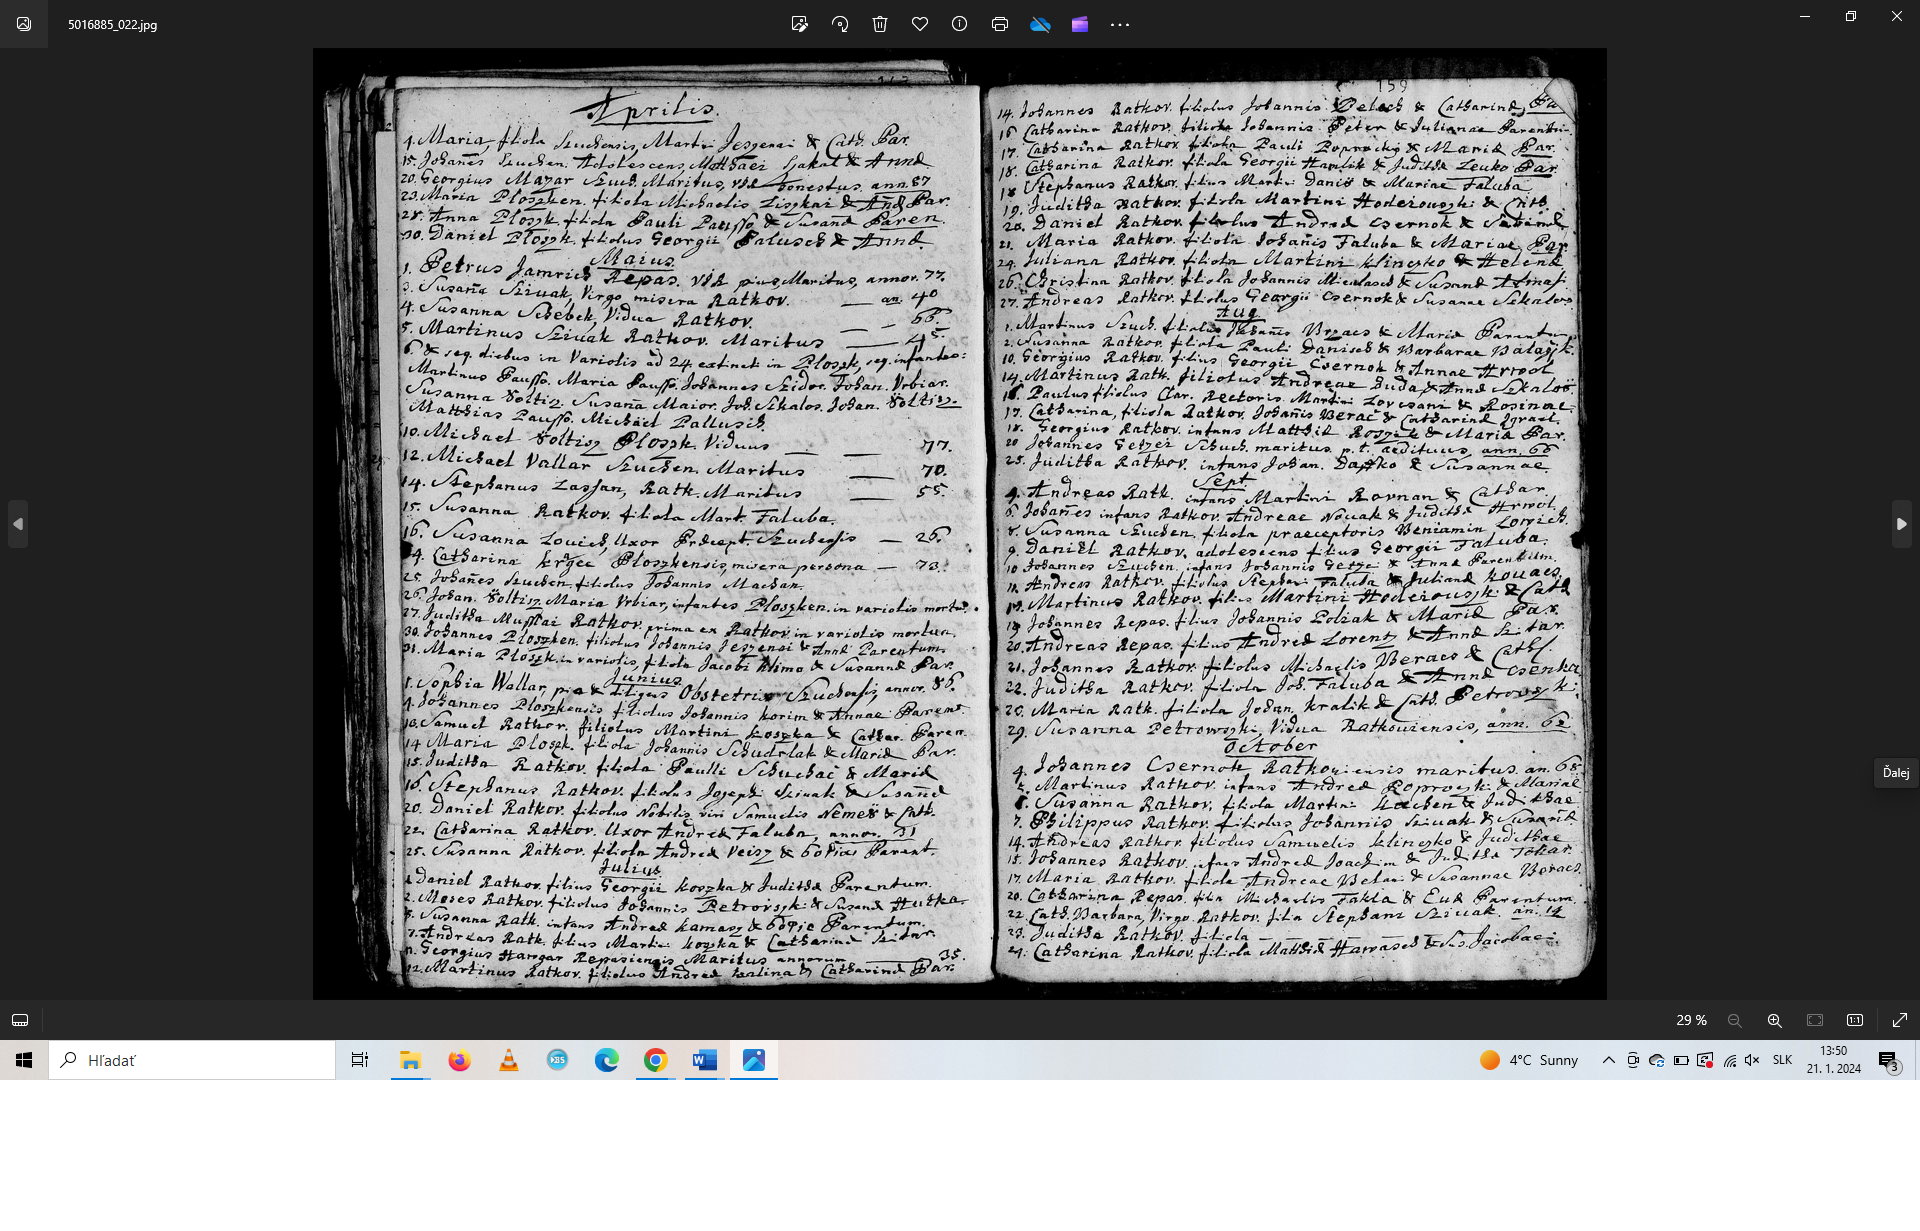 5016885_022.jpg
Aprilis.
4. Maria, filiola Szuchensis, Martini Jeszenai & Cath. Par.
15. Johanes Szuchen. Adolescens, Matthaei & Annae
20. Georgius Mazar Szuch. Maritus, vir honestus. ann. 87
23. Maria Ploszken. filiola Michaelis Liszkai & And Par.
28. Anna Ploszk. filiola Pauli Pausso & Susana Paren.
30. Daniel Ploszk. filiolus Georgii Palusch & Annae
Maius.
1. Petrus Jamrich Repas. vir pius, Maritus, annor. 77.
3. Susana Sziuak, Virgo misera Ratkov. — an 40
4. Susanna Schebek, Vidua Ratkov. — — 66.
5. Martinus Sziuak Ratkov. Maritus — 45.
6. & seq. diebus in Variolis ad 24 extincti in Ploszk, seq. infantes:
Martinus Pausso. Maria Pausso. Johannes Szidor. Johan. Vrbiar.
Susanna Soltisz. Susana Maior. Joh. Szkalos. Johan. Soltisz.
Matthias Pausso. Michael Pallusch.
10. Michael Soltisz Ploszk. Viduus — — 77.
12. Michael Vallar Szuchen. Maritus — 70.
14. Stephanus Lassan, Ratk. Maritus — 55.
15. Susanna Ratkov. filiola Mart. Faluba.
16. Susanna Louich, Uxor Praecept. Szuchensis — 26.
Catharina Ploszkensis, misera persona — 73.
25. Johanes Szuchen. filiolus Johannis Machan.
26. Johan. Soltisz. Maria Vrbiar, infantes Ploszken. in variolis mortui.
27. Juditha Ratkov. prima ex Ratkov. in variolis mortua.
30. Johannes Ploszken. filiolus Johannis Jeszenai & Annae Parentum
31. Maria Ploszk. in variolis, filiola Jacobi Klimo & Susannae Par.
Junius
1. Sophia Wallar, pia & Obstetrix Szuchensis, annor. 86.
4. Johannes Ploszkensis filiolus Johannis Korim & Annae Parent.
10. Samuel Ratkov. filiolus Martini Koszka & Cathar. Paren.
14. Maria Ploszk. filiola Johannis & Mariae Par.
15. Juditha Ratkov. filiola Paulli Schuchai & Mariae
16. Stephanus Ratkov. filiolus Josephi Sziuak & Susanae
20. Daniel Ratkov. filiolus Nobilis viri Samuelis Nemes & Cath.
22. Catharina Ratkov. Uxor Andreae Faluba, annor. 31
25. Susanna Ratkov. filiola Andreae Veisz & Sophiae Parent.
Julius
Daniel Ratkov. filius Georgii Koszka & Judithae Parentum.
2. Moses Ratkov. filiolus Johannis Petrovszk & Susanae Hutka
Susanna Ratk. infans Andreae Kamasz & Sophiae Parentum.
7. Andreas Ratk. filius Martini Koszka & Catharinae
Georgius Hangar Repasiensis Maritus annorum 35.
12. Martinus Ratkov. filiolus Andreae Kalina & Catharinae Par.
159
14. Johannes Ratkov. filiolus Johannis Pelach & Catharinae
16. Catharina Ratkov. filiola Johannis Peter & Julianae Parentum
17. Catharina Ratkov. filiola Pauli Poprocky & Mariae Par.
18. Catharina Ratkov. filiola Georgii Havlik & Judithae Leuko Par.
18. Stephanus Ratkov. filius Martini Danis & Mariae Faluba
19. Juditha Ratkov. filiola Martini & Cath.
20. Daniel Ratkov. filiolus Andreae Csernok & Sabinae
21. Maria Ratkov. filiola Johanis Faluba & Mariae Par.
24. Juliana Ratkov. filiola Martini Klinczko & Helenae
26. Christina Ratkov. filiola Johannis & Susanae
27. Andreas Ratkov. filiolus Georgii Csernok & Susanae Szkalos
Aug.
1. Martinus Szuch. filiolus Johanis & Mariae Parentum
2. Susanna Ratkov. filiola Pauli Danisch & Barbarae
10. Georgius Ratkov. filius Georgii Csernok & Annae
14. Martinus Ratk. filiolus Andreae Buda & Annae Szkalos
16. Paulus filiolus Clar. Rectoris Martini Lovcsani & Rosinae
17. Catharina, filiola Ratkov. Johanis & Catharinae
18. Georgius Ratkov. infans Matthiae & Mariae Par.
20. Johannes Getzei Szuch. maritus p. t. aedituus ann. 66
25. Juditha Ratkov. infans Johan. & Susannae.
Sept.
4. Andreas Ratk. infans Martini Rovnan & Cathar.
6. Johanes infans Ratkov. Andreae Nouak & Judithae
8. Susanna Szuchen. filiola praeceptoris Beniamin Lovich.
9. Daniel Ratkov. adolescens filius Georgii Faluba.
10. Johannes Szuchen. infans Johannis Getze & Annae Parentum.
11. Andreas Ratkov. filiolus Stephani Faluba & Julianae Kouacs
Martinus Ratkov. filius Martini & Cath
19. Johannes Repas. filius Johannis Poliak & Mariae Par.
20. Andreas Repas. filius Andreae Lorentz & Annae
21. Johannes Ratkov. filiolus Michaelis Beracs & Cath.
22. Juditha Ratkov. filiola Joh. Faluba & Annae Csenka
Maria Ratk. filiola Johan. Kralik & Cath. Petrovszki
29. Susanna Petrowszki, Vidua Ratkouiensis, ann. 62
October
4. Johannes Csernok Ratkouiensis maritus. an. 68.
Martinus Ratkov. infans Andreae & Mariae
Susanna Ratkov. filiola Martini & Judithae
7. Philippus Ratkov. filiolus Johannis Sziuak & Susanae
14. Andreas Ratkov. filiolus Samuelis Klinczko & Judithae
15. Johannes Ratkov. infans Andreae Joachim & Judithae Tokar.
17. Maria Ratkov. filiola Andreae & Susannae Beracs
20. Catharina Repas. filia Michaelis Takla & Euae Parentum
22. Cath. Barbara, Virgo. Ratkov. filia Stephani Sziuak. an. 14
23. Juditha Ratkov. filiola —
Catharina Ratkov. filiola Matthiae & Sus. Jacobaei
Ďalej
29 %
1:1
Hľadať
KBS
4°C Sunny
SLK
13:50
21. 1. 2024
3